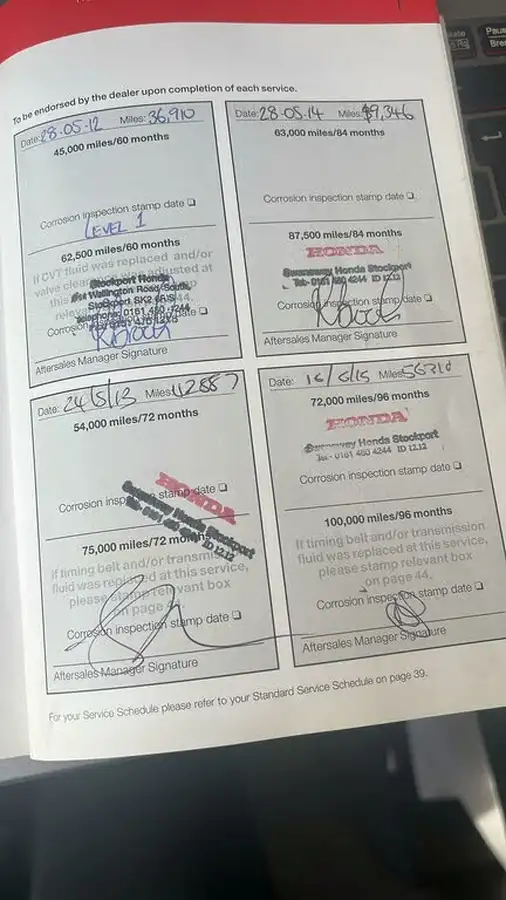 To be endorsed by the dealer upon completion of each service.
Date: 28.05.12 Miles: 36,910
45,000 miles/60 months
Corrosion inspection stamp date ❏
LEVEL 1
62,500 miles/60 months
If CVT fluid was replaced and/or
valve adjusted at
this
Stockport Honda
Wallington Road South,
Stockport SK2
Telephone: 0161 480
Corrosion date ❏
Date: 28.05.14 Miles: 9,346
63,000 miles/84 months
Corrosion inspection stamp date ❏
87,500 miles/84 months
HONDA
Swansway Honda Stockport
Tel:- 0161 480 4244 ID 12.12
Corrosion inspection stamp date ❏
Aftersales Manager Signature
Aftersales Manager Signature
Date: 24/5/13 Miles: 42887
54,000 miles/72 months
Corrosion stamp date ❏
HONDA
Swansway Honda Stockport
Tel:- 0161 480 ID 12.12
75,000 miles/72 months
If timing belt and/or transmission
fluid was replaced at this service,
please stamp relevant box
on page 44.
Corrosion inspection stamp date ❏
Aftersales Manager Signature
Date: 16/5/15 Miles 56310
72,000 miles/96 months
HONDA
Swansway Honda Stockport
Tel:- 0161 480 4244 ID 12.12
Corrosion inspection stamp date ❏
100,000 miles/96 months
If timing belt and/or transmission
fluid was replaced at this service,
please stamp relevant box
on page 44.
Corrosion inspection stamp date ❏
Aftersales Manager Signature
For your Service Schedule please refer to your Standard Service Schedule on page 39.
Pause